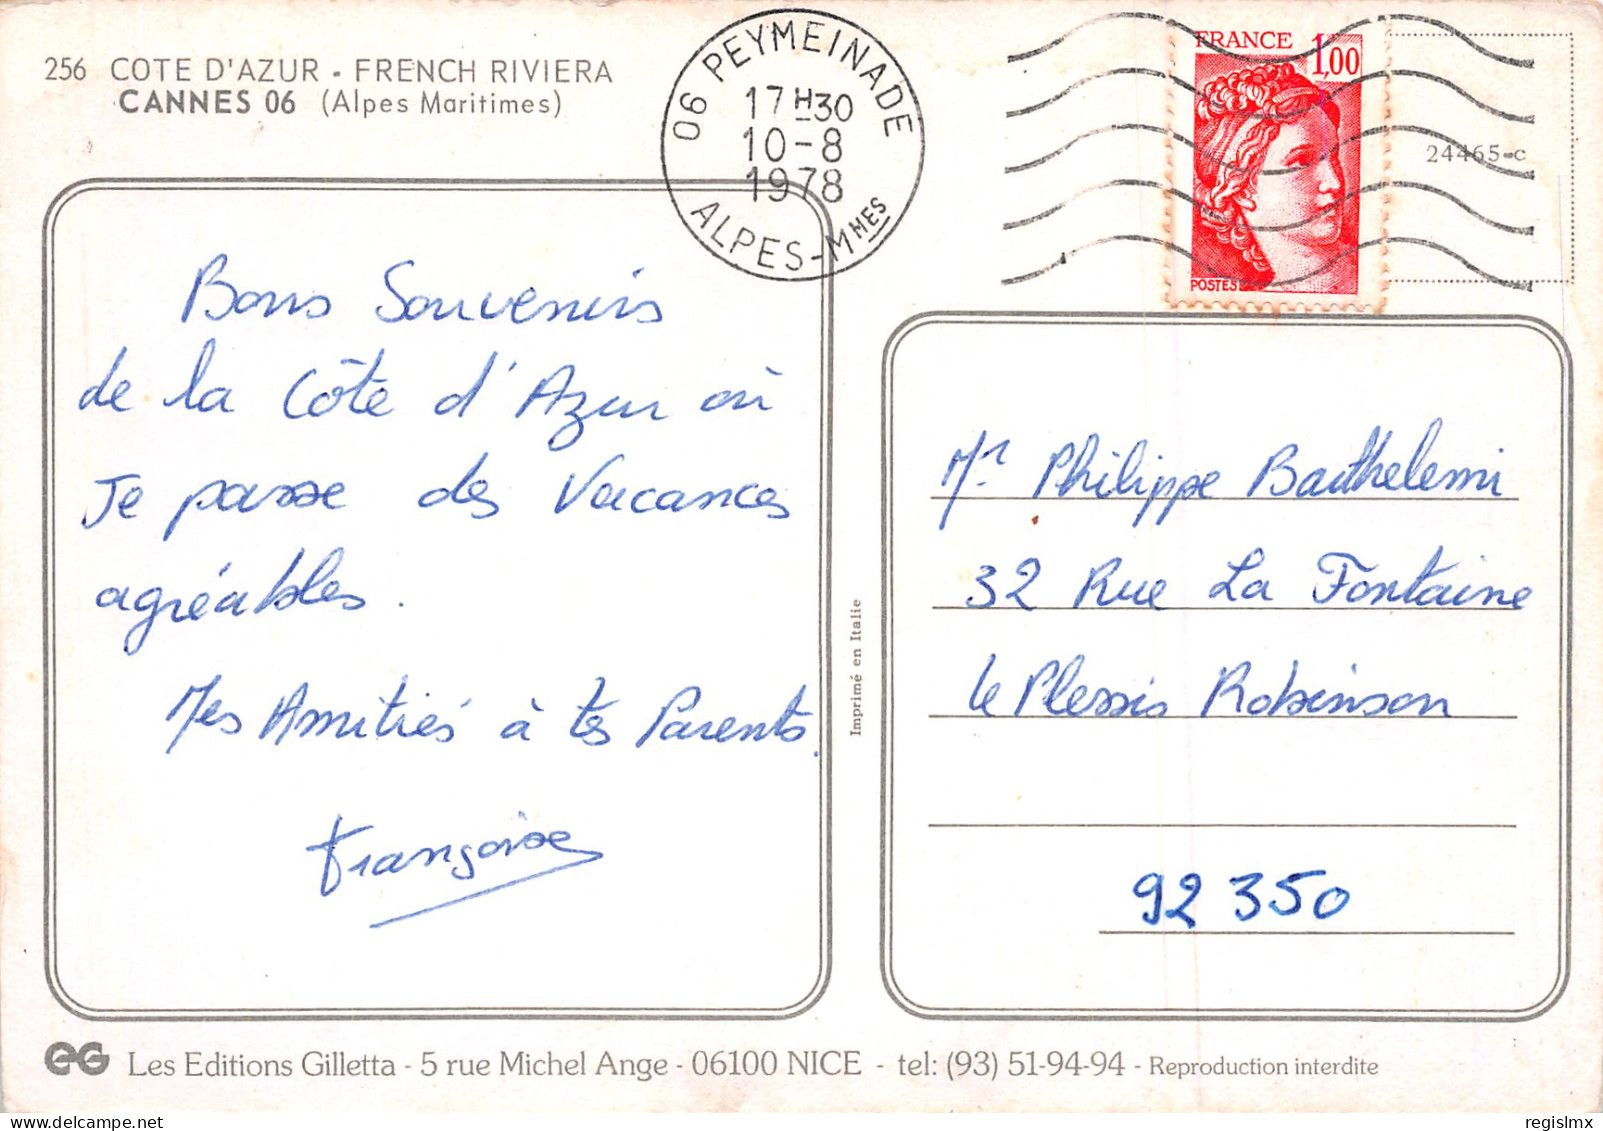 256 COTE D'AZUR - FRENCH RIVIERA
CANNES 06 (Alpes Maritimes)
06 PEYMEINADE
17 H 30
10 - 8
1978
ALPES-MMES
FRANCE 1,00
POSTES
24465-c
Bons Souvenirs
de la Côte d'Azur où
Je passe des Vacances
agréables.
Mes Amitiés à tes Parents.
Françoise
Imprimé en Italie
Mr Philippe Barthelemi
32 Rue La Fontaine
Le Plessis Robinson
92350
EG Les Editions Gilletta - 5 rue Michel Ange - 06100 NICE - tel: (93) 51-94-94 - Reproduction interdite
delcampe.net
regislmx